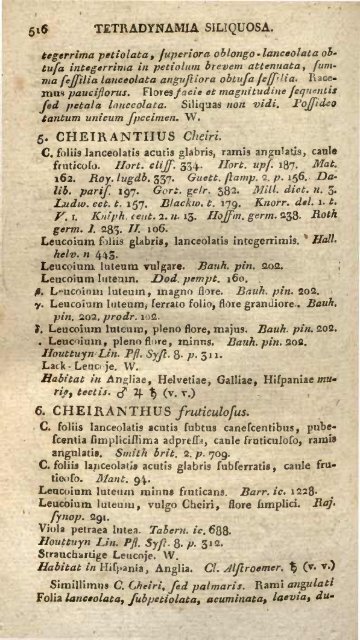 516 TETRADYNAMIA SILIQUOSA.
tegerrima petiolata, ſuperiora oblongo-lanceolata ob-
tuſa integerrima in petiolum brevem attenuata, ſum-
ma ſeſſilia lanceolata anguſtiora obtuſa ſeſſilia. Race-
mus pauciflorus. Flores facie et magnitudine ſequentis
ſed petala lanceolata. Siliquas non vidi. Poſſideo
tantum unicum ſpecimen. W.
5. CHEIRANTHUS Cheiri.
C. foliis lanceolatis acutis glabris, ramis angulatis, caule
fruticoſo. Hort. cliff. 334. Hort. upſ. 187. Mat.
162. Roy. lugdb. 337. Guett. ſtamp. 2. p. 156. Da-
lib. pariſ. 197. Gort. gelr. 382. Mill. dict. n. 3.
Ludw. ect. t. 157. Blackw. t. 179. Knorr. del. 1. t.
V. 1. Kniph. cent. 2. n. 13. Hoffm. germ. 238. Roth
germ. I. 283. II. 106.
Leucoium foliis glabris, lanceolatis integerrimis. Hall.
helv. n 443.
Leucoium luteum vulgare. Bauh. pin. 202.
Leucoium luteum. Dod. pempt. 160.
β. Leucoium luteum, magno flore. Bauh. pin. 202.
γ. Leucoium luteum, ſerrato folio, flore grandiore. Bauh.
pin. 202. prodr. 102.
δ. Leucoium luteum, pleno flore, majus. Bauh. pin. 202.
. Leucoium, pleno flore, minus. Bauh. pin. 202.
Houttuyn Lin. Pfl. Syſt. 8. p. 311.
Lack-Leucoje. W.
Habitat in Angliae, Helvetiae, Galliae, Hiſpaniae mu-
ris, tectis. ♂ ♃ ♄ (v. v.)
6. CHEIRANTHUS fruticuloſus.
C. foliis lanceolatis acutis ſubtus caneſcentibus, pube-
ſcentia ſimpliciſſima adpreſſa, caule fruticuloſo, ramis
angulatis. Smith brit. 2. p. 709.
C. foliis lanceolatis acutis glabris ſubſerratis, caule fru-
ticoſo. Mant. 94.
Leucoium luteum minus fruticans. Barr. ic. 1228.
Leucoium luteum, vulgo Cheiri, flore ſimplici. Raj.
ſynop. 291.
Viola petraea lutea. Tabern. ic. 688.
Houttuyn Lin. Pfl. Syſt. 8. p. 312.
Strauchartige Leucoje. W.
Habitat in Hiſpania, Anglia. Cl. Alſtroemer. ♄ (v. v.)
Simillimus C. Cheiri, ſed palmaris. Rami angulati
Folia lanceolata, ſubpetiolata, acuminata, laevia, du-